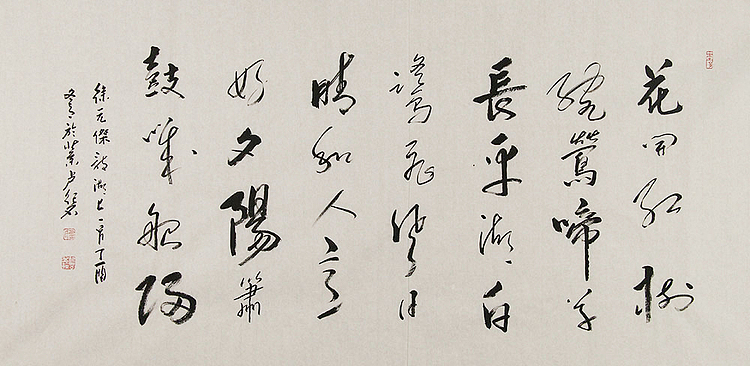 花開紅樹
亂鶯啼草
長平湖白
鷺飛風日
晴和人意
好夕陽簫
鼓幾船歸
徐元傑詩湖上一首丁酉
冬於北京